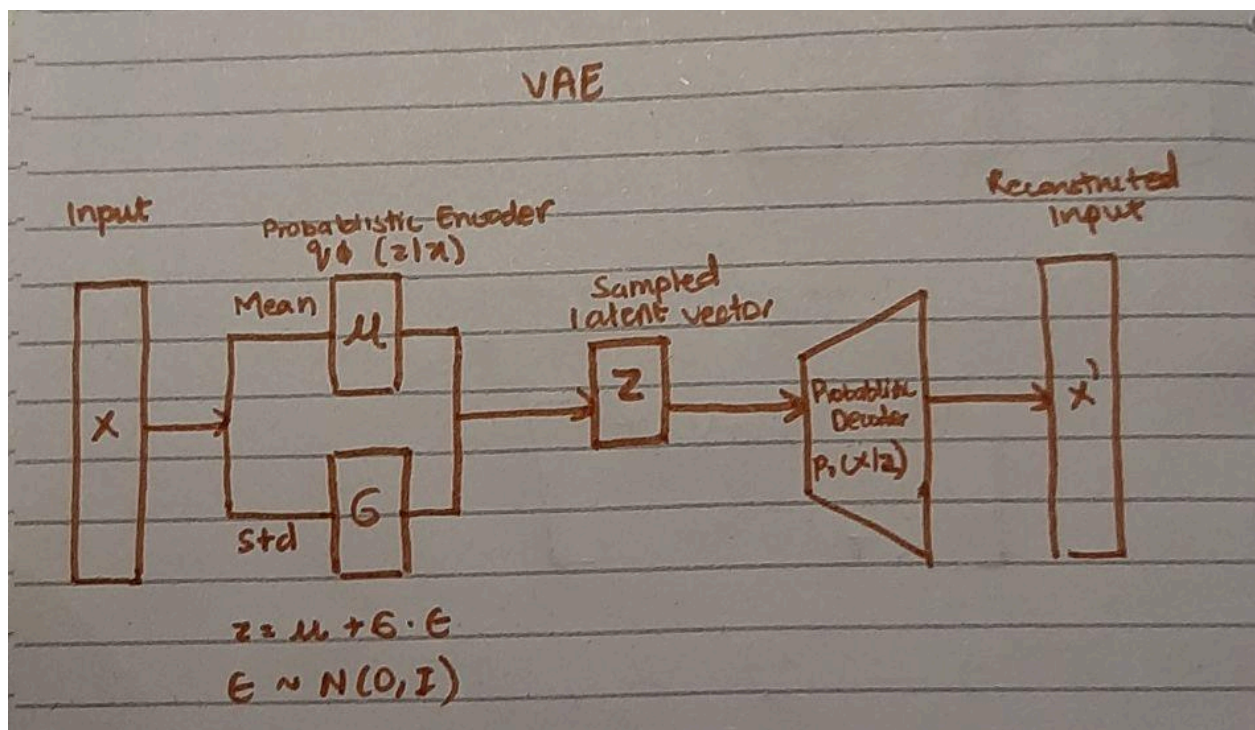 VAE
Input
Probablistic Encoder
qϕ (z|x)
Mean
μ
Std
σ
x
Sampled
latent vector
z
Probablistic
Decoder
(x|z)
Reconstructed
Input
x'
z = μ + σ · ϵ
ϵ ~ N(0, I)